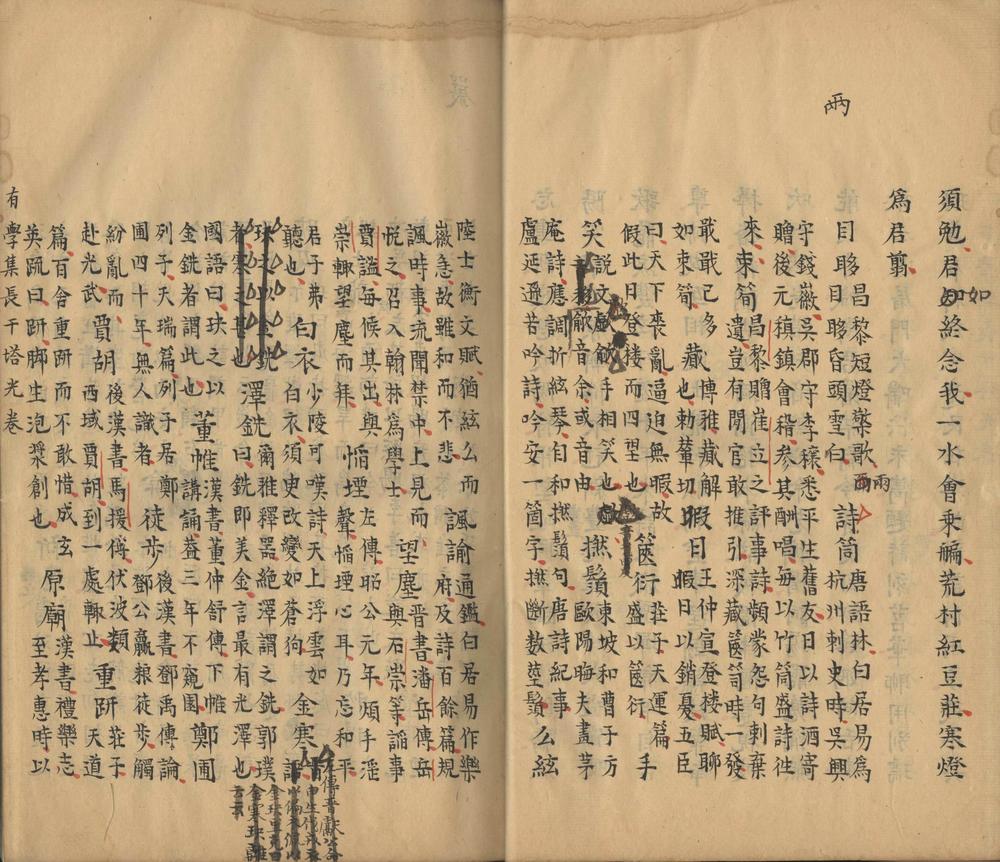 兩
須勉君㔾終念我一水會乘艑荒村紅豆莊寒燈
如如
爲君翦
目眵昌黎短燈檠歌
目眵昏頭雪白
兩雨
詩筒唐語林白居易爲
杭州刺史時吳興
守錢徽吳郡守李穰悉平生舊友日以詩酒寄
贈後元稹鎮會稽參其酬唱每以竹筒盛詩往
來
束筍昌黎贈崔立之評事詩頻蒙怨句刺棄
遺豈有閒官敢推引深藏篋笥時一發
戢戢已多
如束筍
藏也勅葦切
博雅蕆解
暇日王仲宣登楼賦聊
暇日以銷憂五臣
曰天下喪亂逼迫無暇故
假此日登楼而四望也
篋衍莊子天運篇
盛以篋衍
手
笑説文手相笑也
音余或音由
撚鬚東坡和曹子方
歐陽晦夫畫茅
庵詩應調折絃琴自和撚鬚句唐詩紀事
盧延遜苦吟詩吟安一箇字撚斷数莖鬚
么絃
陸士衡文賦猶絃么而
徽急故雖和而不悲
諷諭通鑑白居易作樂
府及詩百餘篇規
諷時事流聞禁中上見而
悦之召入翰林爲學士
望塵晋書潘岳傳岳
與石崇等謟事
賈謐每候其出與
崇輙望塵而拜
慆堙左傳昭公元年煩手淫
聲慆堙心耳乃忘和平
君子弗
聽也
白衣少陵可嘆詩天上浮雲如
白衣須史改變如蒼狗
金寒
澤銑爾雅釋器絶澤謂之銑郭璞
銑曰銑即美金言最有光澤也
國語曰玦之以
金銑者謂此也
董帷漢書董仲舒傳下帷
講誦葢三年不窺園
鄭圃
列子天瑞篇列子居鄭
圃四十年無人識者
徒步後漢書鄧禹傳論
鄧公贏粮徒歩觸
紛亂而
赴光武
賈胡後漢書馬援傳伏波類
西域賈胡到一處輙止
重趼莊子
天道
篇百舍重趼而不敢惜成玄
英疏曰趼脚生泡漿創也
原廟漢書禮樂志
至孝惠時以
有學集長干塔光卷